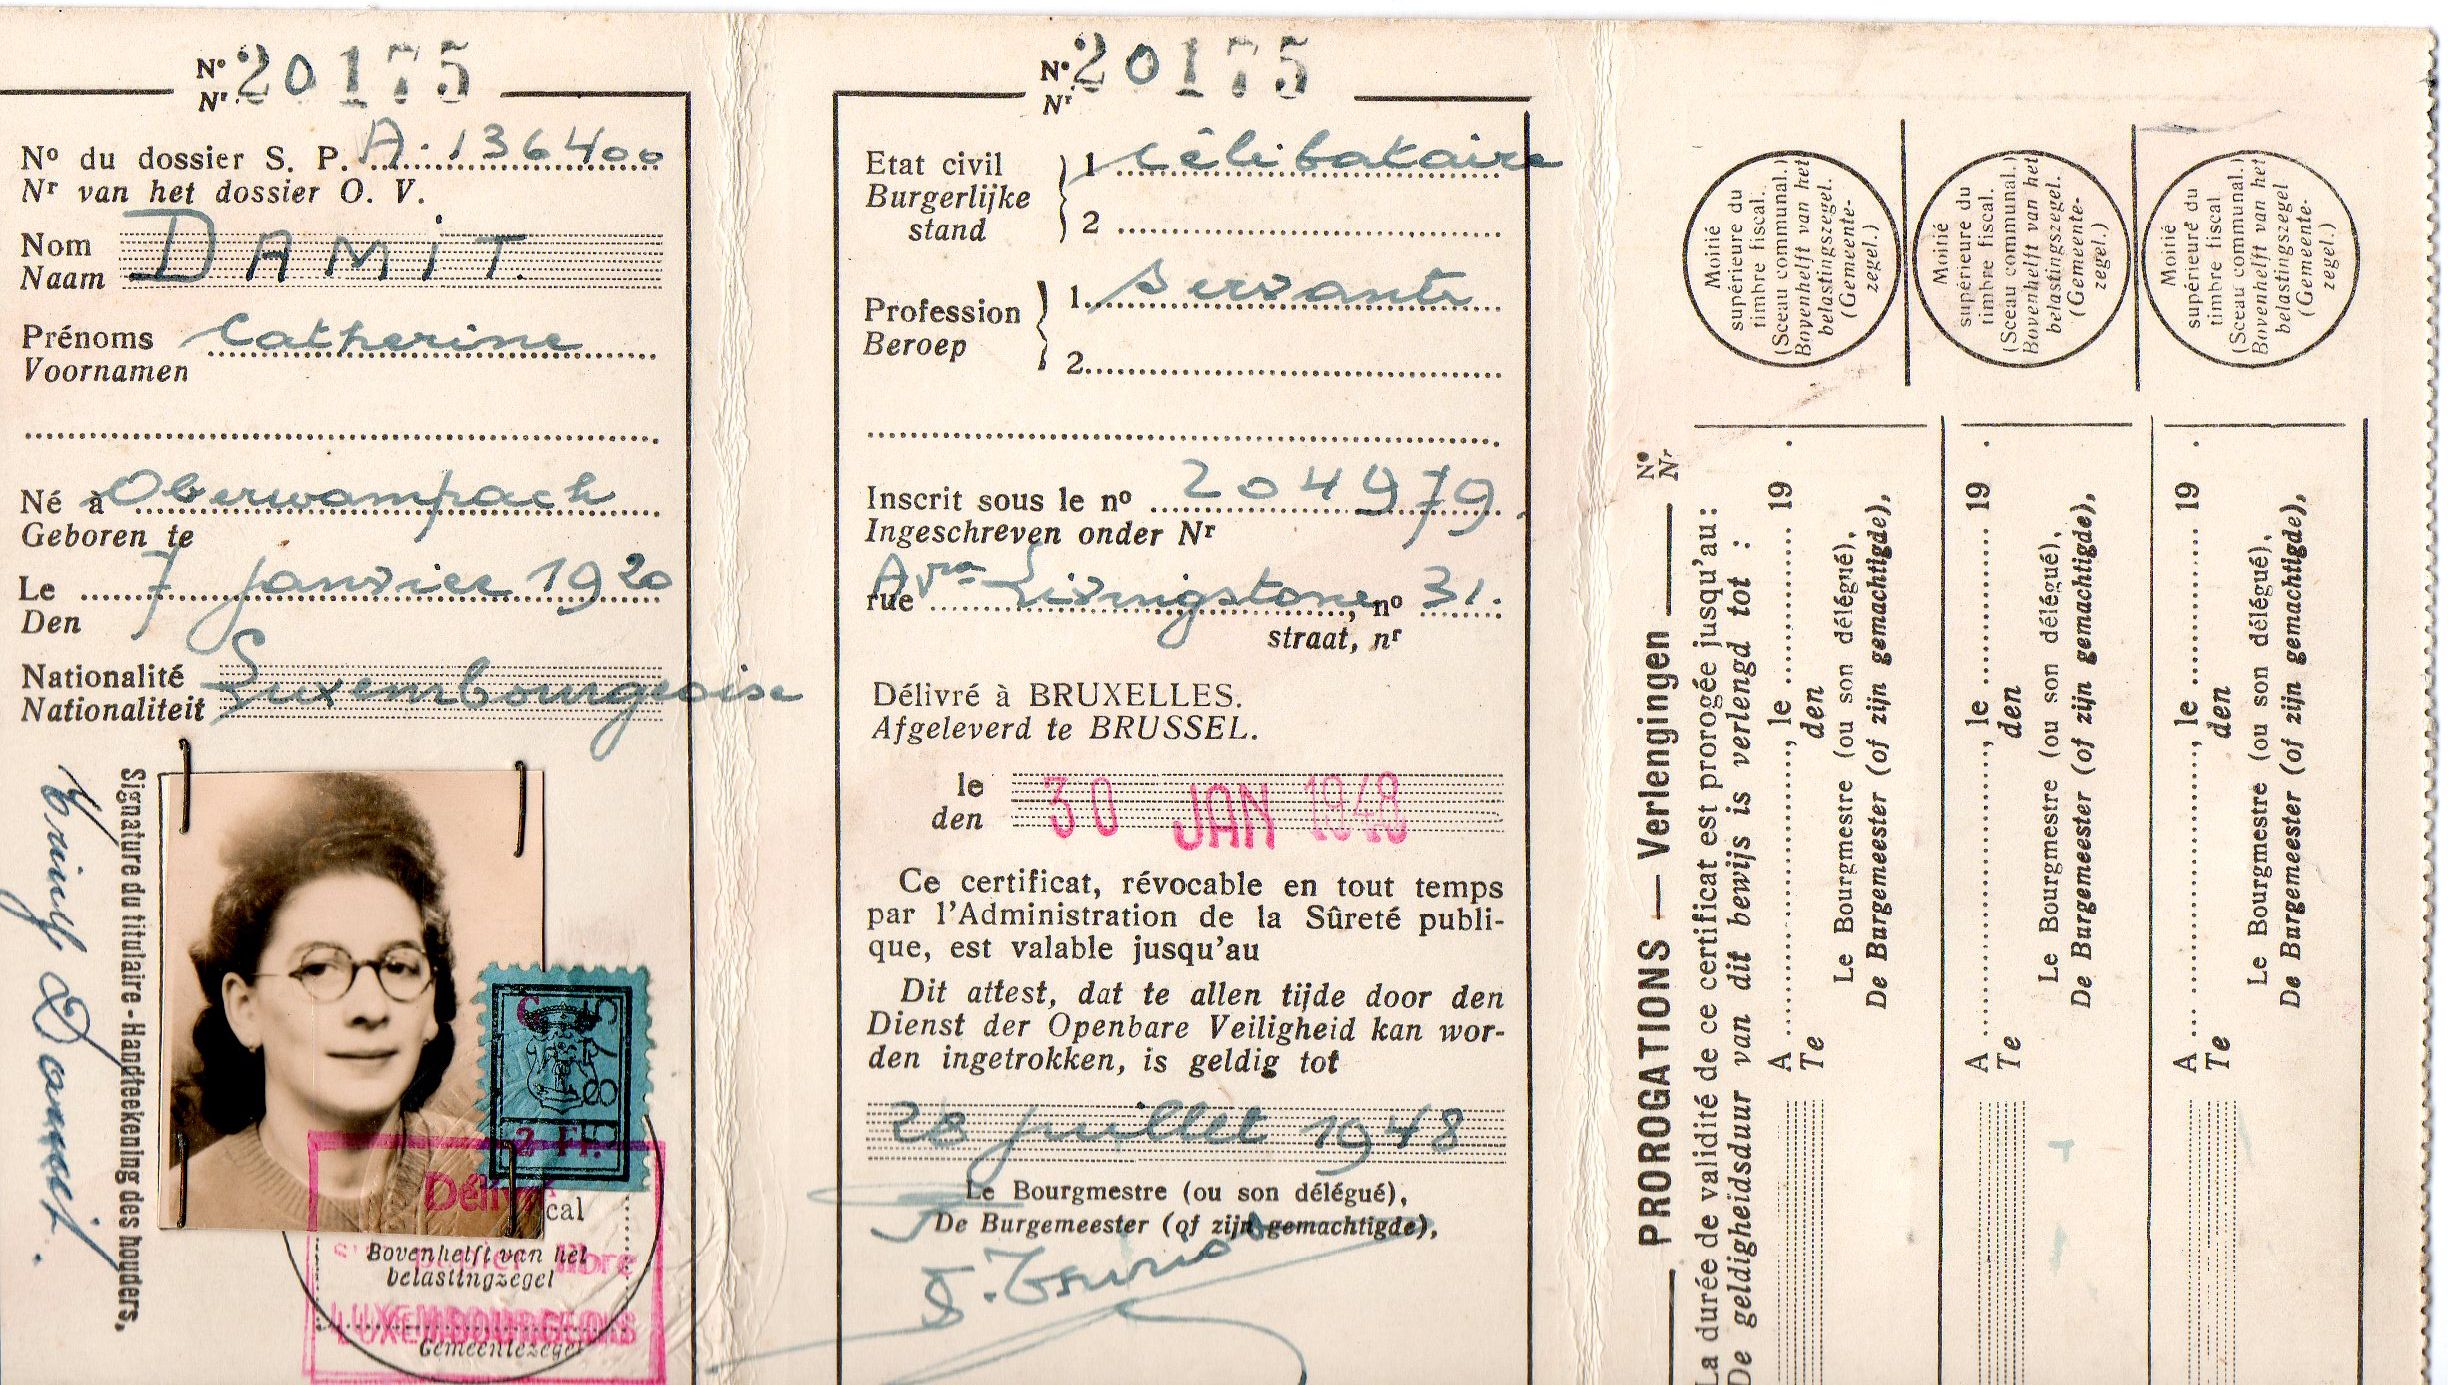 Nº 20175
Nr
Nº du dossier S. P. A. 136400
Nr van het dossier O. V.
Nom DAMIT.
Naam
Prénoms Catherine
Voornamen
Né à Oberwampach
Geboren te
Le 7 janvier 1920
Den
Nationalité Luxembourgeoise
Nationaliteit
Signature du titulaire - Handteekening des houders,
Damit.
C 5
8
2 Fr.
Délivr
cal
Bovenhelft van het
belastingzegel
libre
LUXEMBOURGEOIS
Gemeentezegel
Nº 20175
Nr
Etat civil 1 célibataire
Burgerlijke
stand 2
Profession 1 servante
Beroep 2
Inscrit sous le nº 204979
Ingeschreven onder Nr
rue Avue Livingstone, nº 31.
straat, nr
Délivré à BRUXELLES.
Afgeleverd te BRUSSEL.
le 30 JAN 1948
den
Ce certificat, révocable en tout temps
par l'Administration de la Sûreté publi-
que, est valable jusqu'au
Dit attest, dat te allen tijde door den
Dienst der Openbare Veiligheid kan wor-
den ingetrokken, is geldig tot
28 juillet 1948
Le Bourgmestre (ou son délégué),
De Burgemeester (of zijn gemachtigde),
PROROGATIONS — Verlengingen Nº
Nr
La durée de validité de ce certificat est prorogée jusqu'au:
De geldigheidsduur van dit bewijs is verlengd tot :
A , le 19 .
Te den
Le Bourgmestre (ou son délégué),
De Burgemeester (of zijn gemachtigde),
Moitié
supérieure du
timbre fiscal.
(Sceau communal.)
Bovenhelft van het
belastingszegel.
(Gemeente-
zegel.)
A , le 19 .
Te den
Le Bourgmestre (ou son délégué),
De Burgemeester (of zijn gemachtigde),
Moitié
supérieure du
timbre fiscal.
(Sceau communal.)
Bovenhelft van het
belastingszegel.
(Gemeente-
zegel.)
A , le 19 .
Te den
Le Bourgmestre (ou son délégué),
De Burgemeester (of zijn gemachtigde),
Moitié
supérieure du
timbre fiscal
(Sceau communal.)
Bovenhelft van het
belastingszegel
(Gemeente-
zegel.)